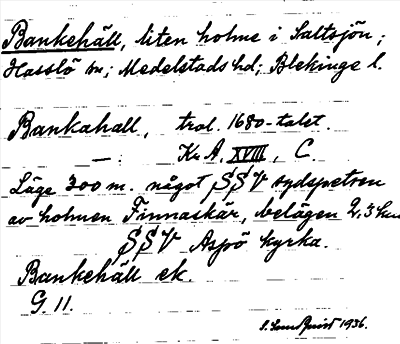 Bankehäll, liten holme i Saltsjön;
Hasslö sn; Medelstads hd; Blekinge l.
Bankahall, trol. 1680-talet.
—: Kr A. XVIII, C.
Läge 300 m. något SSV sydspetsen
av holmen Finnaskär, belägen 2,3 km
SSV Aspö kyrka.
Bankehäll ek.
G. 11.
S. Lundquist 1936.